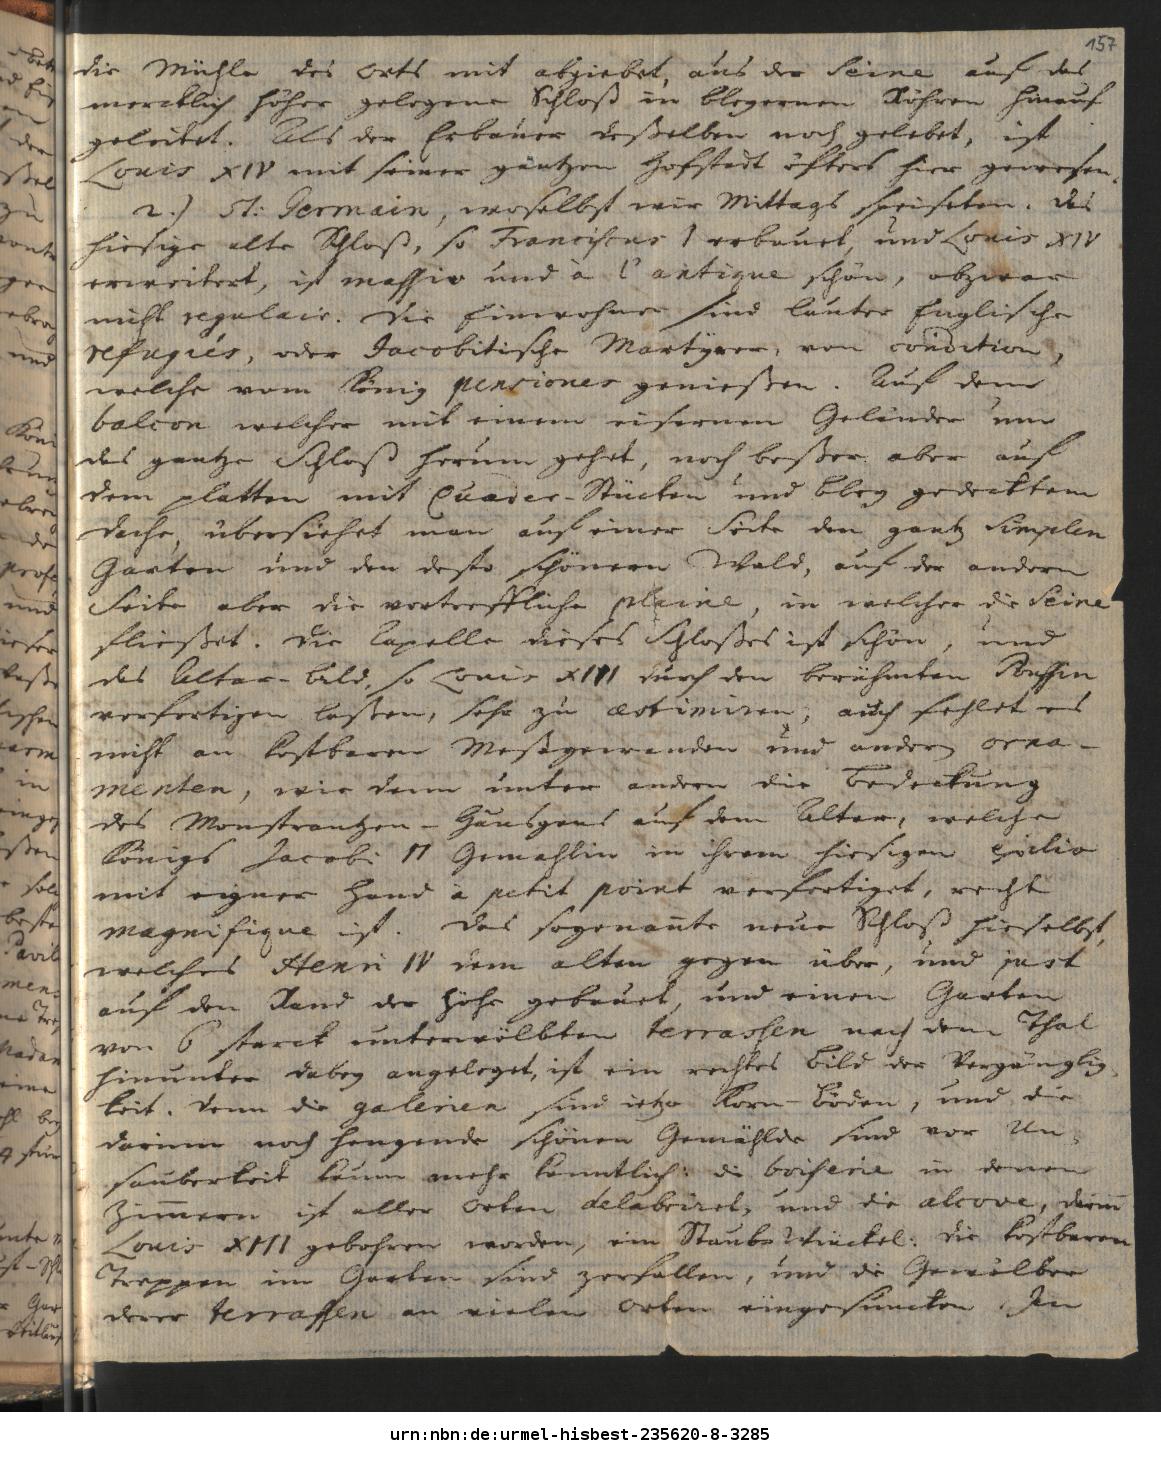 157
die Mühle des Orts mit abgiebet, aus der Seine auf das
mercklich höher gelegene Schloß in bleyernen Röhren hinauf
geleitet. Als der Erbauer deßelben noch gelebet, ist
Louis XIV mit seiner gantzen Hofstadt öfters hier gewesen.
2.) St: Germain, woselbst wir Mittags speiseten. Das
hiesige alte Schloß, so Franciscus I erbauet, und Louis XIV
erweitert, ist massiv und à l'antique schön, obzwar
nicht regulair. Die Einwohner sind lauter Englische
refugiés, oder Jacobitische Martyrer, von condition,
welche vom König pensiones genießen. Auf dem
balcon welcher mit einem eisernen Geländer um
das gantze Schloß herum gehet, noch beßer aber auf
dem platten mit Quader-Stücken und bley gedecktem
Dache, übersiehet man auf einer Seite den gantz simplen
Garten und den desto schönern Wald, auf der andern
Seite aber die vortreffliche plaine, in welcher die Seine
fließet. Die Capelle dieses Schloßes ist schön, und
das Altar-bild, so Louis XIII durch den berühmten Poussin
verfertigen laßen, sehr zu æstimiren; auch fehlet es
nicht an kostbaren Meßgewanden und andern orna-
menten, wie denn unter andern die Bedeckung
des Monstrantzen-Häusgens auf dem Altar, welche
Königs Jacobi II Gemahlin in ihrem hiesigen exilio
mit eigner Hand à petit point verfertiget, recht
magnifique ist. Das sogenante neue Schloß hieselbst,
welches Henri IV dem alten gegen über, und just
auf den Rand der Höhe gebauet, und einen Garten
von 6 starck unterwölbten terrassen nach dem Thal
hinunter dabey angeleget, ist ein rechtes Bild der Vergänglig-
keit. Denn die galerien sind ietzo Korn-Böden, und die
darinn noch hengende schönen Gemählde sind vor Un-
sauberkeit kaum mehr kenntlich: die boiserie in denen
Zimmern ist aller Orten delabriret, und die alcove, darin
Louis XIII gebohren worden, ein Staub-Winckel. Die kostbaren
Treppen im Garten sind zerfallen, und die Gewölber
derer terrassen an vielen Orten eingesuncken. In
urn:nbn:de:urmel-hisbest-235620-8-3285